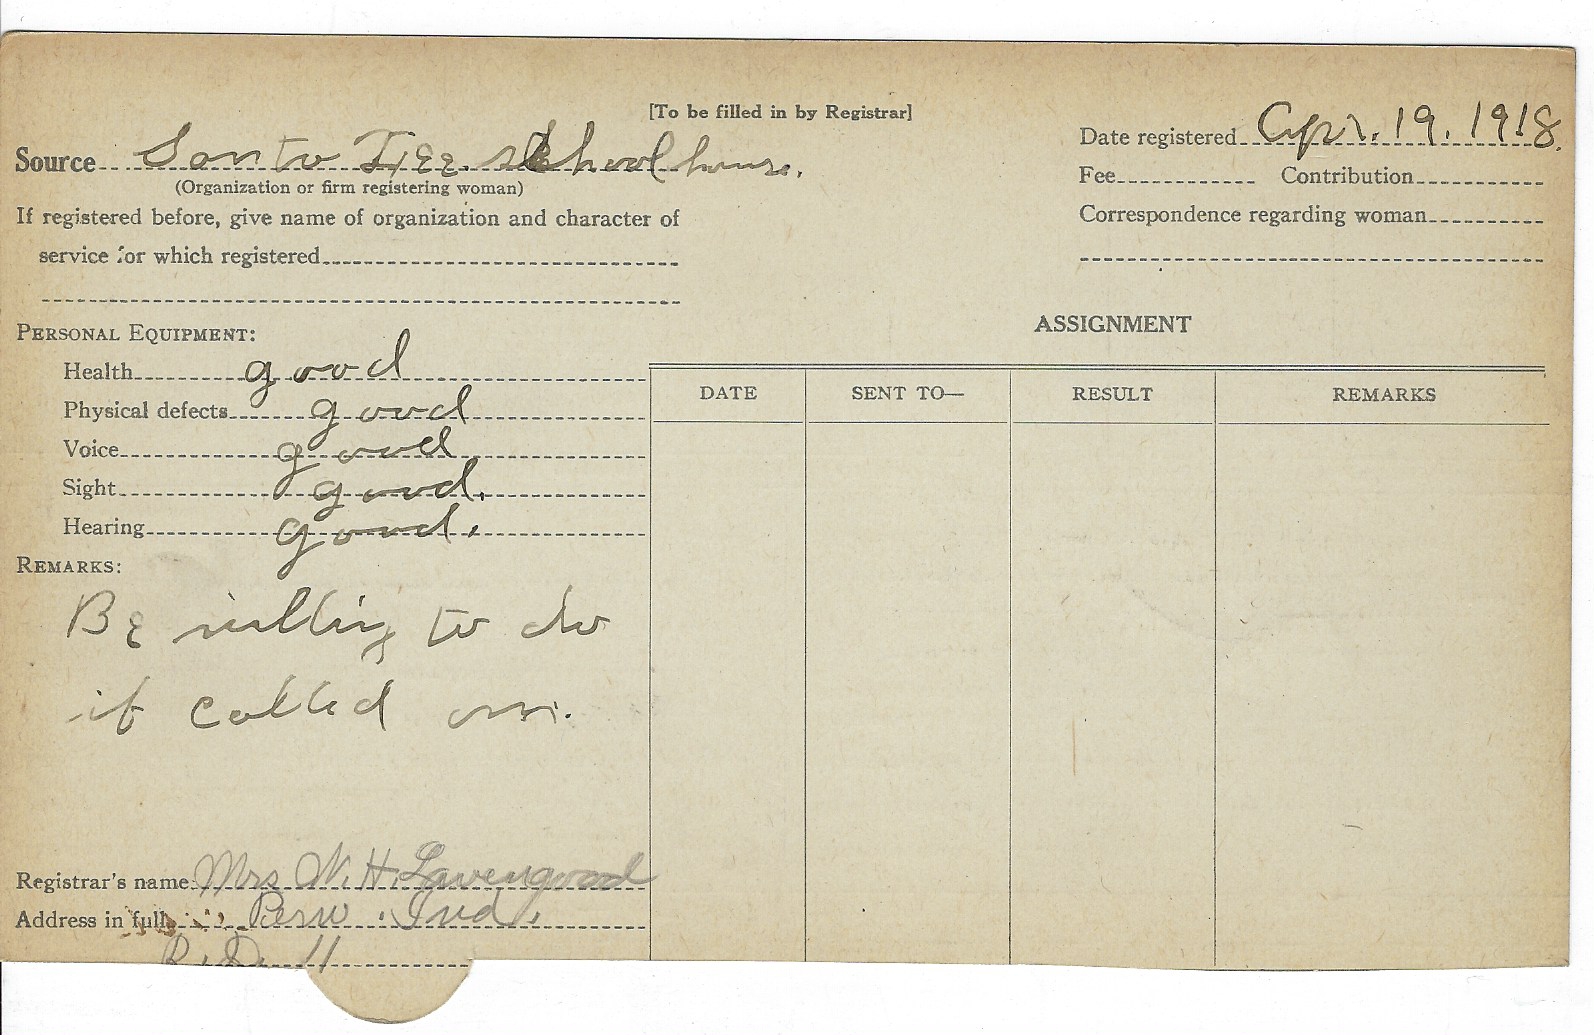 [To be filled in by Registrar]
Source Santa Fee Schoolhouse.
(Organization or firm registering woman)
Date registered Apr. 19. 1918.
Fee Contribution
If registered before, give name of organization and character of
service for which registered
Correspondence regarding woman
PERSONAL EQUIPMENT:
Health good
Physical defects good
Voice good
Sight good.
Hearing good.
REMARKS:
Be willing to do
if called on.
ASSIGNMENT
DATE SENT TO— RESULT REMARKS
Registrar's name Mrs N. H. Lavengood
Address in full Peru. Ind.
R. D. 11